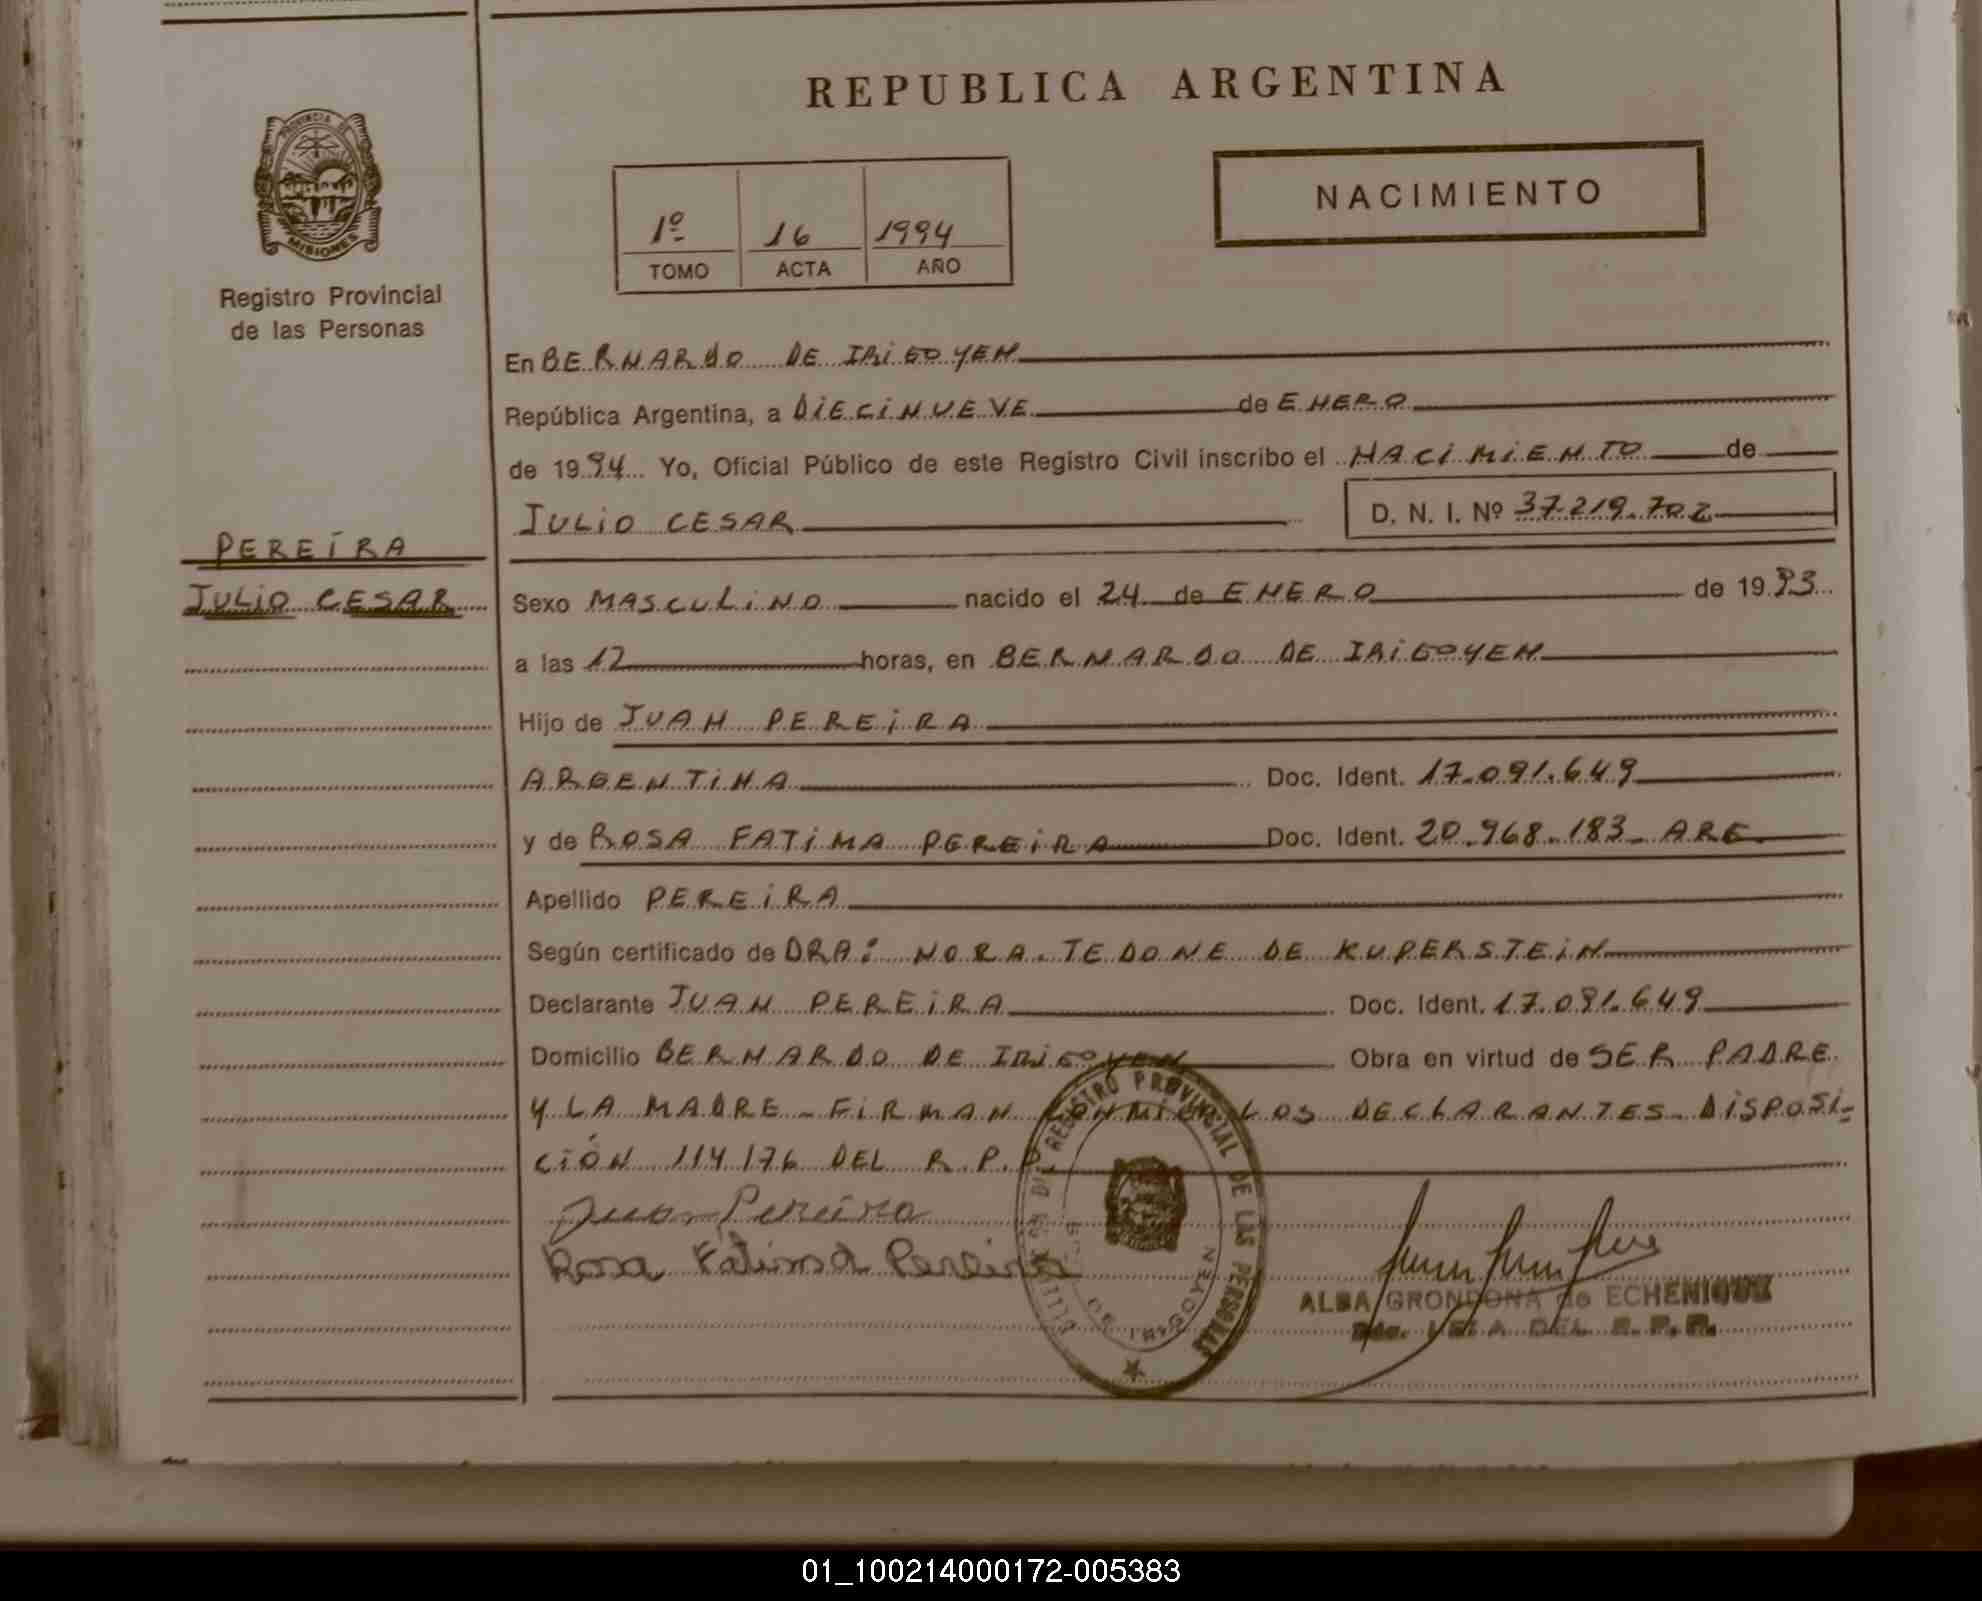 REPUBLICA ARGENTINA
PROVINCIA DE
MISIONES
Registro Provincial
de las Personas
NACIMIENTO
1º 16 1994
TOMO ACTA AÑO
En BERNARDO DE IRIGOYEN
República Argentina, a DIECINUEVE de ENERO
de 1994 Yo, Oficial Público de este Registro Civil inscribo el NACIMIENTO de
JULIO CESAR D. N. I. Nº 37.219.702
PEREIRA
JULIO CESAR
Sexo MASCULINO nacido el 24 de ENERO de 1993
a las 12 horas, en BERNARDO DE IRIGOYEN
Hijo de JUAN PEREIRA
ARGENTINA Doc. Ident. 17.091.649
y de ROSA FATIMA PEREIRA Doc. Ident. 20.968.183 ARG.
Apellido PEREIRA
Según certificado de DRA: NORA TEDONE DE KUPERSTEIN
Declarante JUAN PEREIRA Doc. Ident. 17.091.649
Domicilio BERNARDO DE IRIGOYEN Obra en virtud de SER PADRE
Y LA MADRE - FIRMAN CONMIGO LOS DECLARANTES - DISPOSI-
CIÓN 114/76 DEL R.P.P.
Juan Pereira
Rosa Fátima Pereira
REGISTRO PROVINCIAL DE LAS PERSONAS
DE IRIGOYEN
ALBA GRONDONA de ECHENIQUE
DEL R.P.P.
01_100214000172-005383